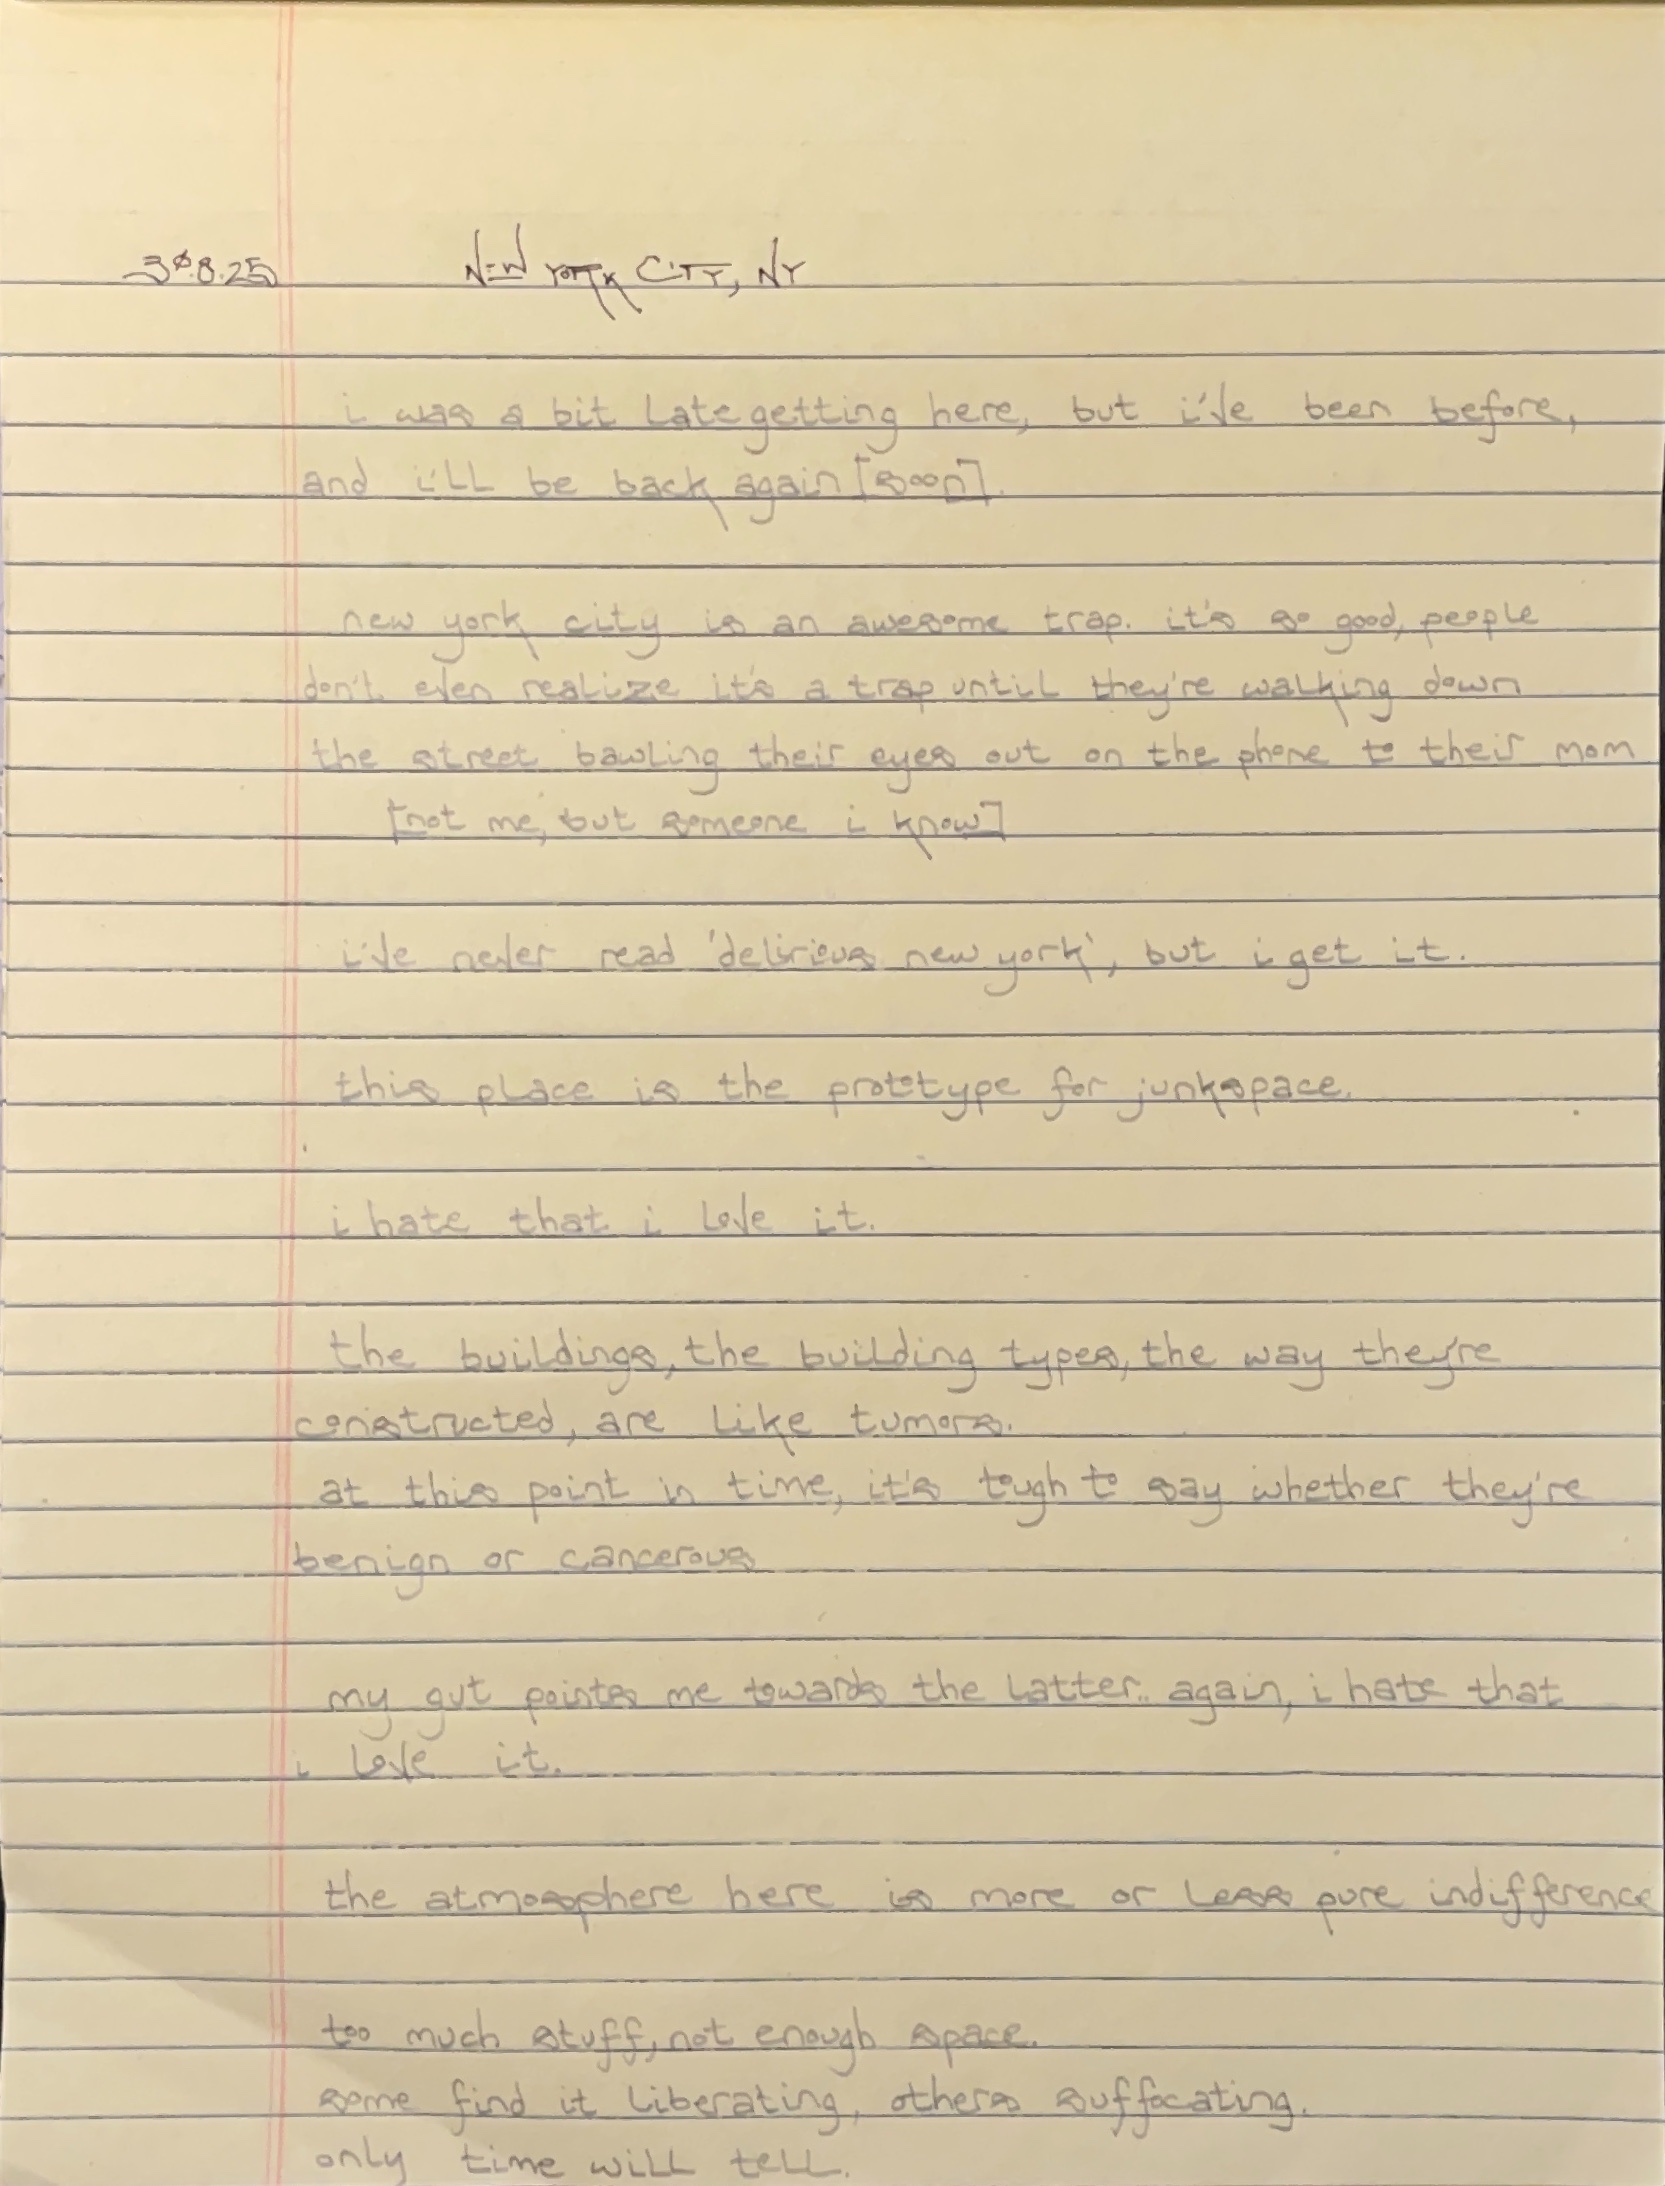 3ø.8.25 NEW YORK CITY, NY
i was a bit late getting here, but i've been before,
and i'll be back again [soon].
new york city is an awesome trap. it's so good, people
don't even realize it's a trap until they're walking down
the street bawling their eyes out on the phone to their mom
[not me, but someone i know]
i've never read 'delirious new york', but i get it.
this place is the prototype for junkspace.
i hate that i love it.
the buildings, the building types, the way they're
constructed, are like tumors.
at this point in time, it's tough to say whether they're
benign or cancerous
my gut points me towards the latter.. again, i hate that
i love it.
the atmosphere here is more or less pure indifference
too much stuff, not enough space.
some find it liberating, others suffocating.
only time will tell.